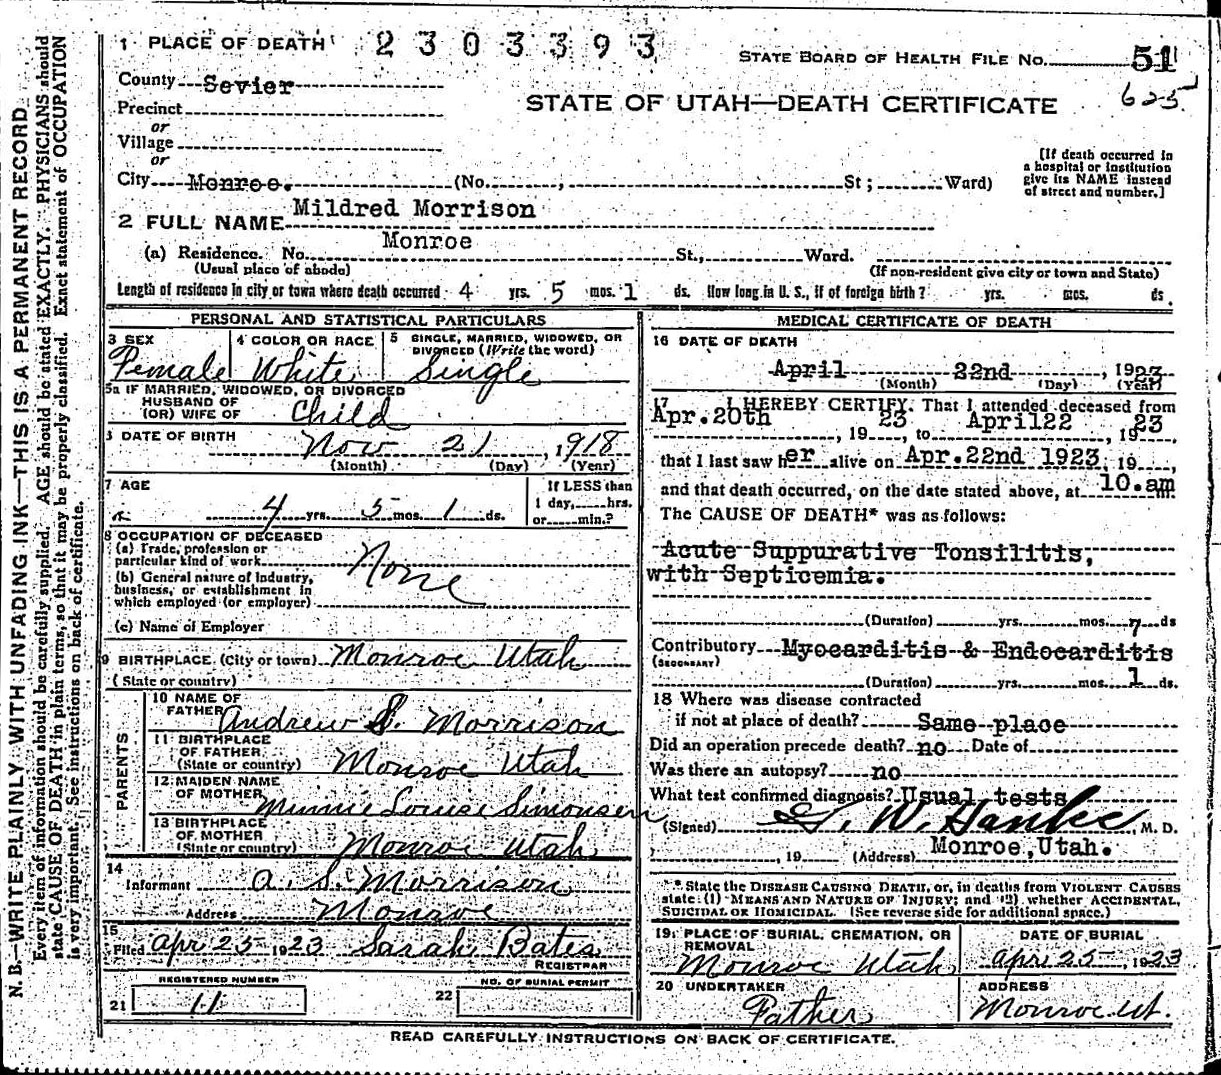 N. B.—WRITE PLAINLY WITH UNFADING INK—THIS IS A PERMANENT RECORD
Every item of information should be carefully supplied. AGE should be stated EXACTLY. PHYSICIANS should
state CAUSE OF DEATH in plain terms, so that it may be properly classified. Exact statement of OCCUPATION
is very important. See instructions on back of certificate.
1 PLACE OF DEATH 2303393
STATE BOARD OF HEALTH FILE No. 51
County Sevier
STATE OF UTAH—DEATH CERTIFICATE 625
Precinct
or
Village
or
City Monroe. (No. , St; Ward)
[If death occurred in
a hospital or institution
give its NAME instead
of street and number.]
2 FULL NAME Mildred Morrison
(a) Residence. No. Monroe St., Ward.
(Usual place of abode) (If non-resident give city or town and State)
Length of residence in city or town where death occurred 4 yrs. 5 mos. 1 ds. How long in U. S., if of foreign birth? yrs. mos. ds.
PERSONAL AND STATISTICAL PARTICULARS
3 SEX 4 COLOR OR RACE 5 SINGLE, MARRIED, WIDOWED, OR
DIVORCED (Write the word)
Female White Single
5a IF MARRIED, WIDOWED, OR DIVORCED
HUSBAND OF
(OR) WIFE OF Child
DATE OF BIRTH Nov 21, 1918
(Month) (Day) (Year)
7 AGE If LESS than
1 day, hrs.
4 yrs. 5 mos. 1 ds. or min.?
8 OCCUPATION OF DECEASED
(a) Trade, profession or
particular kind of work None
(b) General nature of Industry,
business, or establishment in
which employed (or employer)
(c) Name of Employer
9 BIRTHPLACE (City or town) Monroe Utah
(State or country)
PARENTS
10 NAME OF
FATHER Andrew S. Morrison
11 BIRTHPLACE
OF FATHER
(State or country) Monroe Utah
12 MAIDEN NAME
OF MOTHER Minnie Louise Simonsen
13 BIRTHPLACE
OF MOTHER
(State or country) Monroe Utah
14
Informant A. S. Morrison
Address Monroe
15
Filed Apr 25 1923 Sarah Bates
REGISTRAR
REGISTERED NUMBER NO. OF BURIAL PERMIT
21 11 22
MEDICAL CERTIFICATE OF DEATH
16 DATE OF DEATH
April 22nd, 1923
(Month) (Day) (Year)
17 I HEREBY CERTIFY. That I attended deceased from
Apr.20th, 19 23, to April22, 19 23
that I last saw her alive on Apr.22nd 1923, 19
and that death occurred, on the date stated above, at 10.am
The CAUSE OF DEATH* was as follows:
Acute Suppurative Tonsilitis,
with Septicemia.
(Duration) yrs. mos. 7 ds
Contributory Myocarditis & Endocarditis
(SECONDARY)
(Duration) yrs. mos. 1 ds.
18 Where was disease contracted
if not at place of death? Same place
Did an operation precede death? no Date of
Was there an autopsy? no
What test confirmed diagnosis? Usual tests
(Signed) G. W. Hanke, M. D.
, 19 (Address) Monroe, Utah.
* State the DISEASE CAUSING DEATH, or, in deaths from VIOLENT CAUSES
state (1) MEANS AND NATURE OF INJURY; and (2) whether ACCIDENTAL,
SUICIDAL OR HOMICIDAL. (See reverse side for additional space.)
19. PLACE OF BURIAL, CREMATION, OR
REMOVAL DATE OF BURIAL
Monroe Utah Apr 25, 1923
20 UNDERTAKER ADDRESS
Father Monroe. Ut.
READ CAREFULLY INSTRUCTIONS ON BACK OF CERTIFICATE.